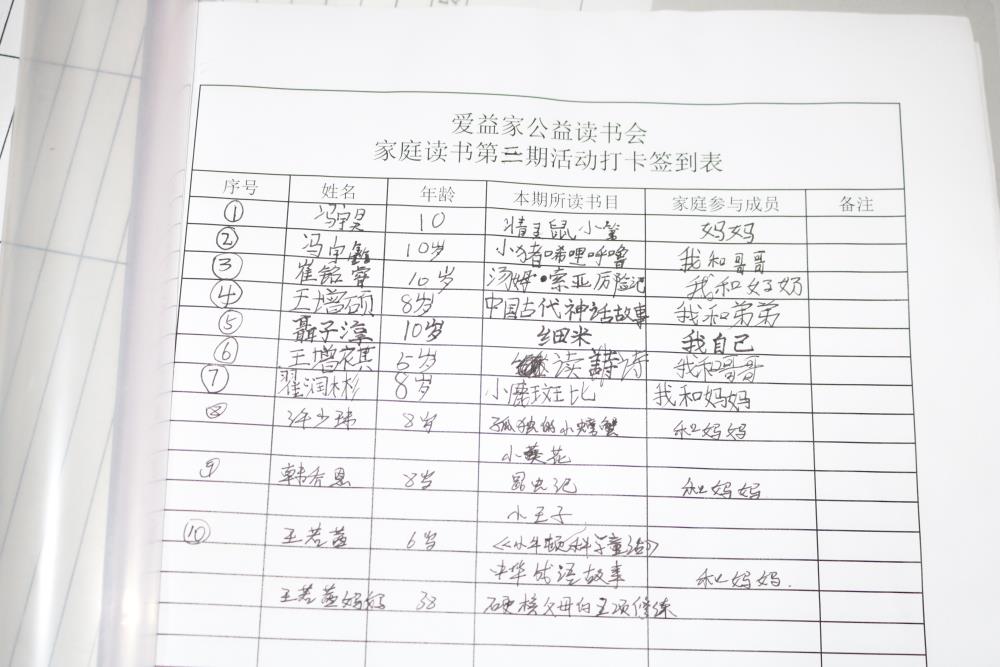 爱益家公益读书会
家庭读书第三期活动打卡签到表
序号 姓名 年龄 本期所读书目 家庭参与成员 备注
① 冯宇昊 10 精灵鼠小笨 妈妈
② 冯宇鑫 10岁 小猪唏哩呼噜 我和哥哥
③ 崔铭睿 10岁 汤姆·索亚历险记 我和奶奶
④ 王增硕 8岁 中国古代神话故事 我和弟弟
⑤ 聂子淳 10岁 细米 我自己
⑥ 王增祺 5岁 读诗 我和哥哥
⑦ 翟润彬 8岁 小鹿斑比 我和妈妈
⑧ 许少玮 8岁 孤独的小螃蟹 和妈妈
小葵花
⑨ 韩 恩 8岁 昆虫记 和妈妈
小王子
⑩ 王若 6岁 《小牛顿科学童话》
中华成语故事 和妈妈.
王若 妈妈 38 硬核父母的五项修炼